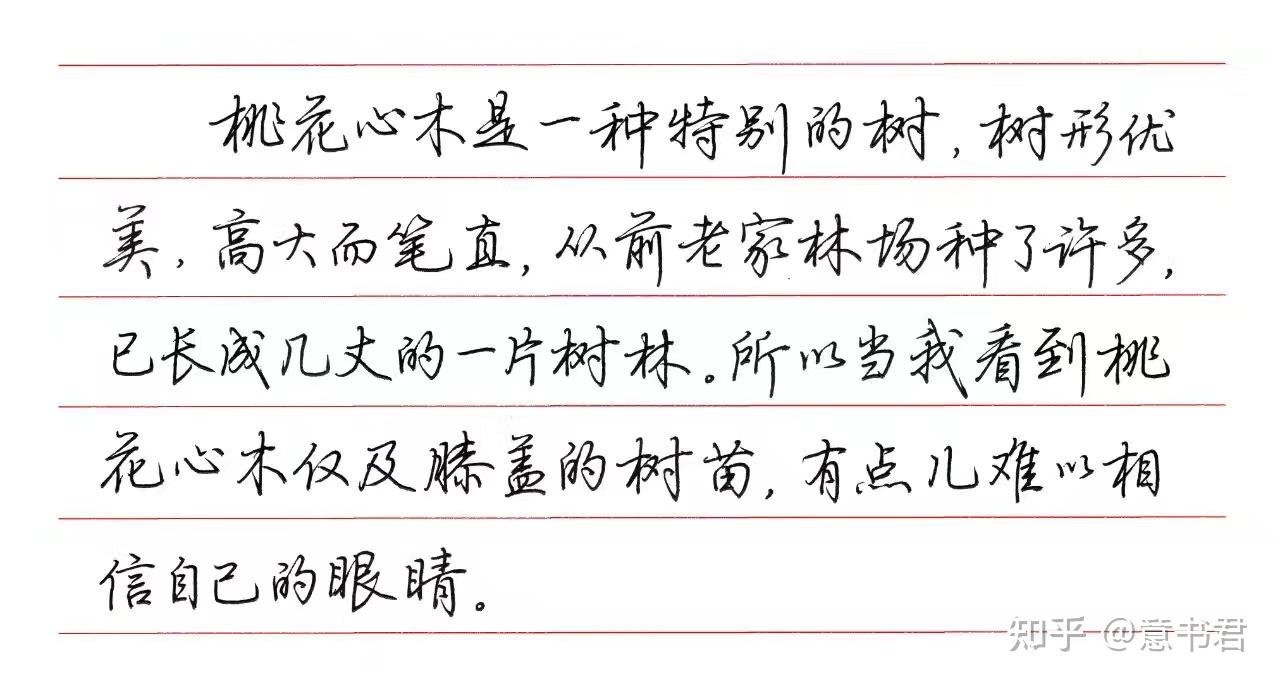 桃花心木是一种特别的树，树形优
美，高大而笔直，从前老家林场种了许多，
已长成几丈的一片树林。所以当我看到桃
花心木仅及膝盖的树苗，有点儿难以相
信自己的眼睛。
知乎 @意书君